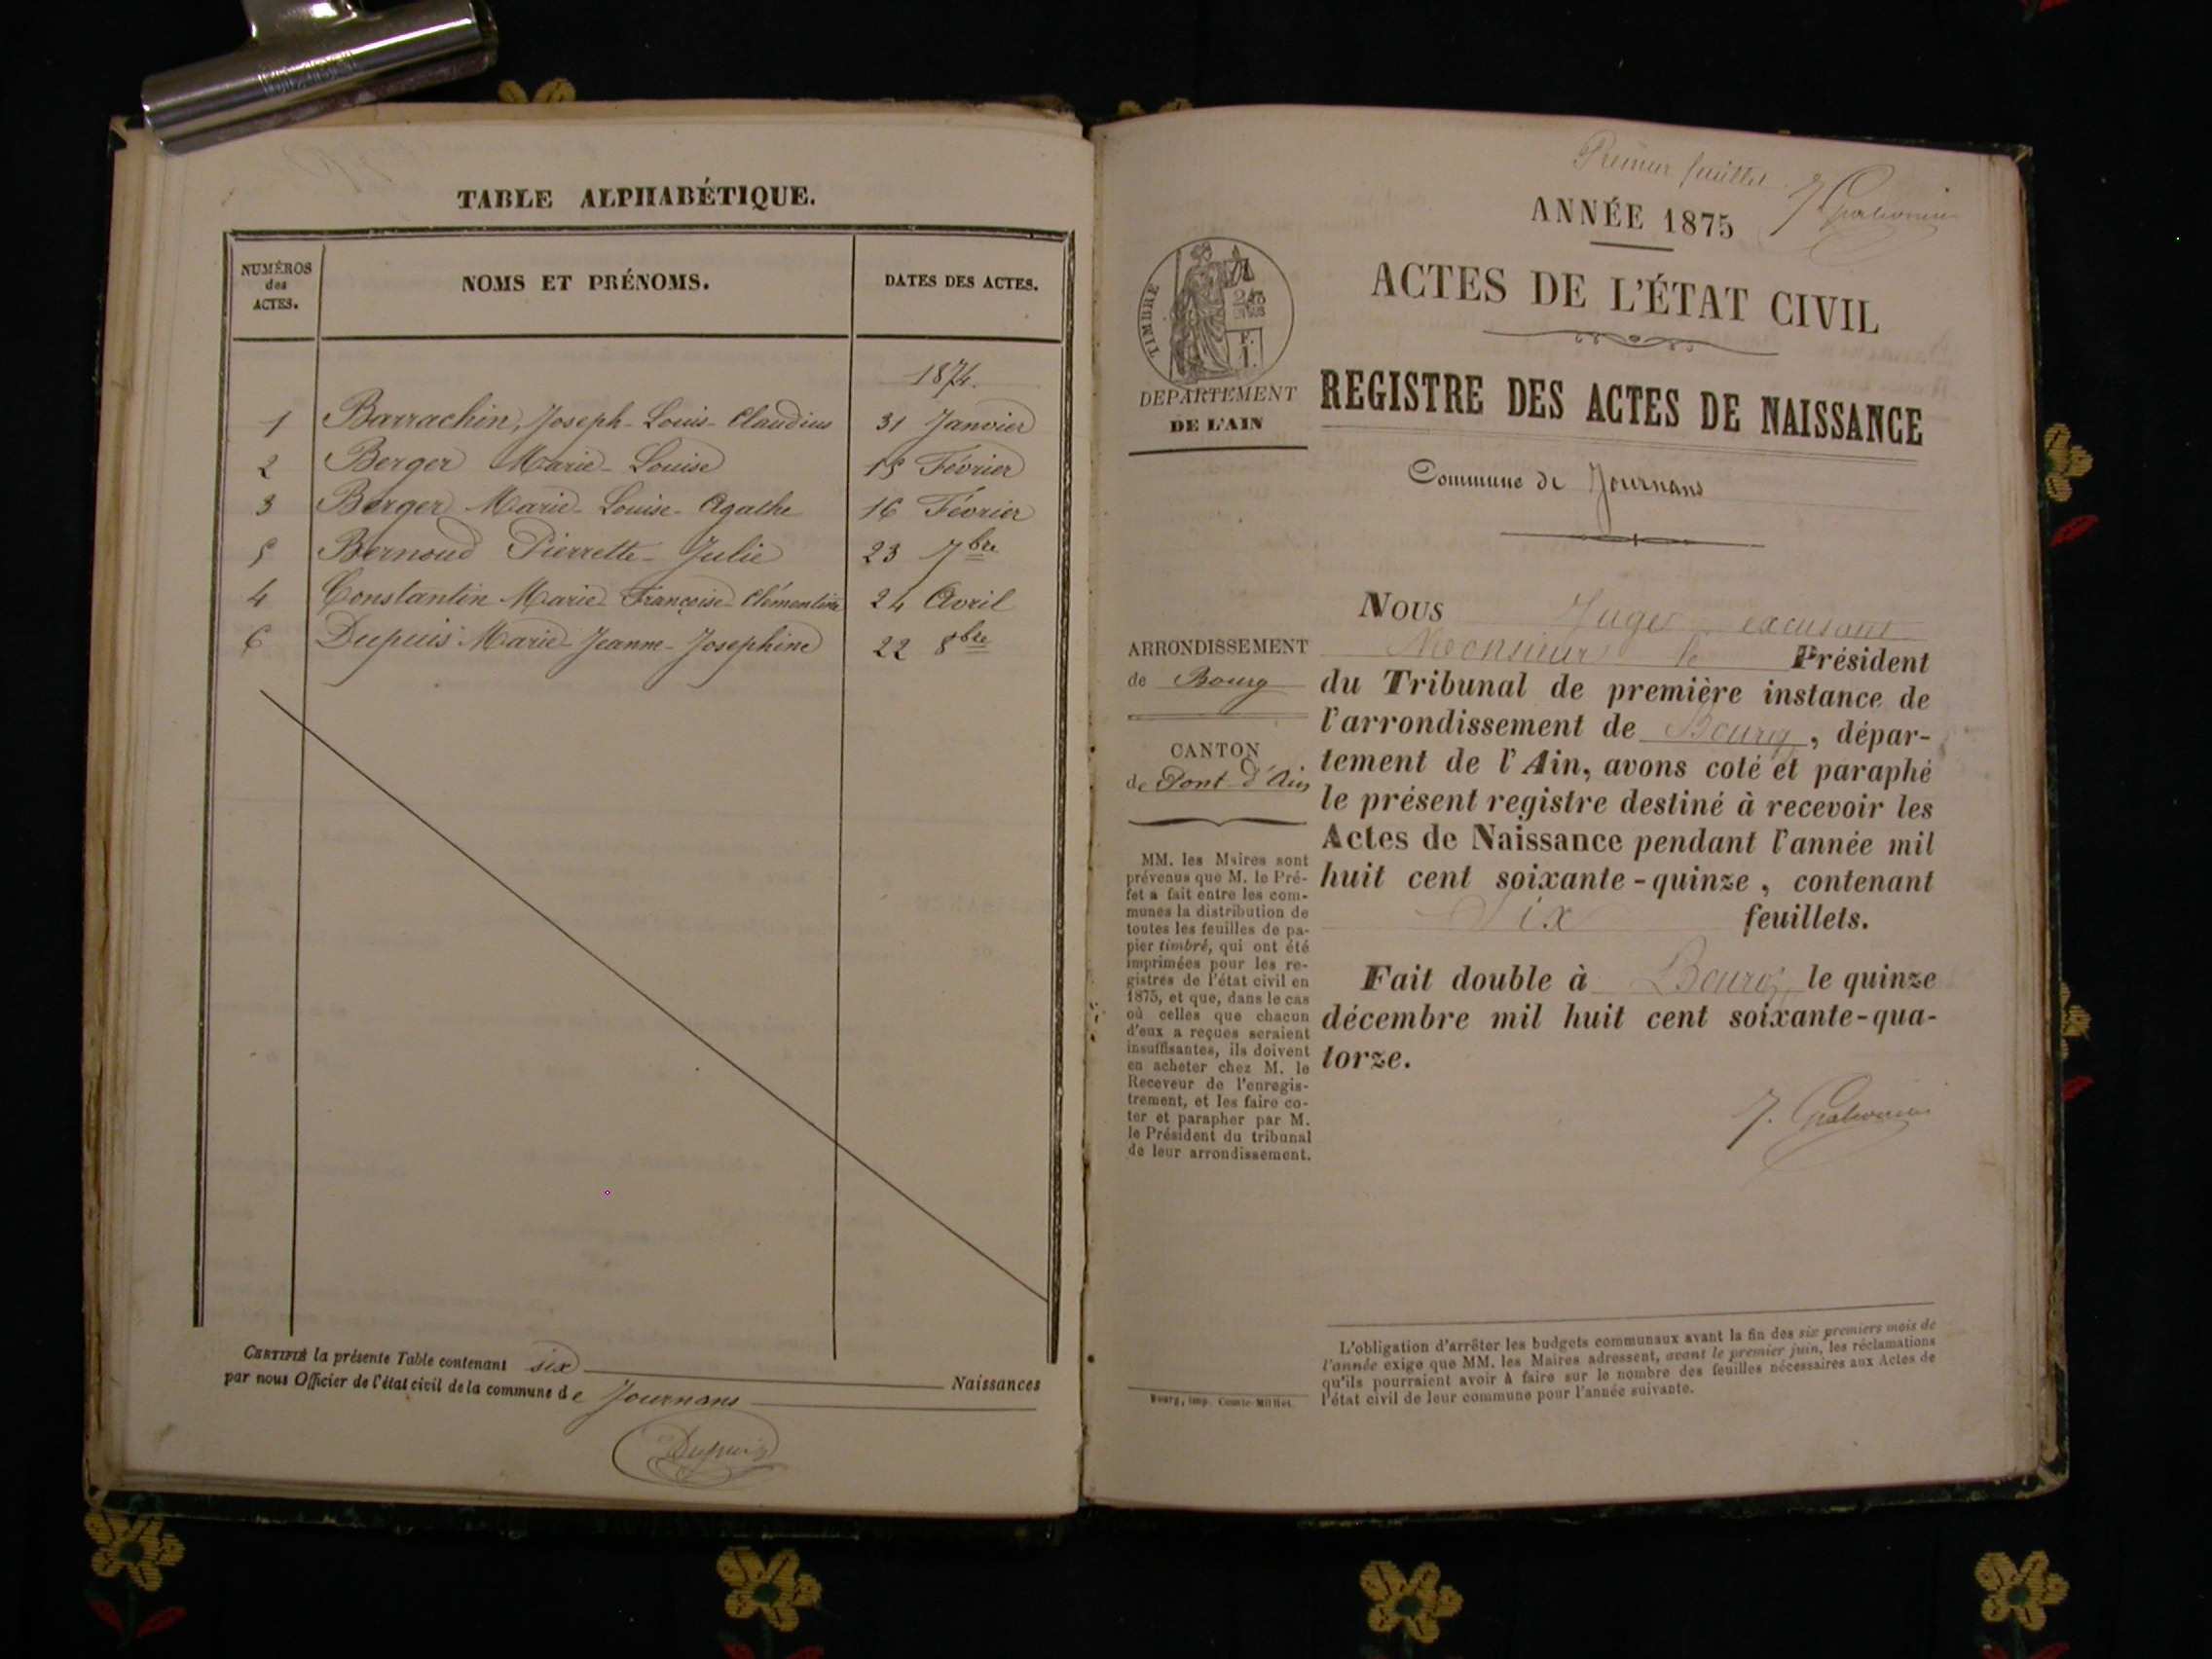 TABLE ALPHABÉTIQUE.
NUMÉROS des ACTES. NOMS ET PRÉNOMS. DATES DES ACTES.
1874.
1 Barrachin, Joseph-Louis-Claudius 31 Janvier
2 Berger Marie-Louise 15 Février
3 Berger Marie-Louise-Agathe 16 Février
5 Bernoud Pierrette-Julie 23 7bre
4 Constantin Marie Françoise Clémentine 24 Avril
6 Dupuis Marie-Jeanne-Josephine 22 8bre
CERTIFIÉ la présente Table contenant six Naissances
par nous Officier de l'état civil de la commune de Journans
Dupuis
Premier feuillet
ANNÉE 1875
ACTES DE L'ÉTAT CIVIL
REGISTRE DES ACTES DE NAISSANCE
Commune de Journans
TIMBRE
DÉPARTEMENT
DE L'AIN
ARRONDISSEMENT
de Bourg
CANTON
de Pont-d'Ain
MM. les Maires sont
prévenus que M. le Pré-
fet a fait entre les com-
munes la distribution de
toutes les feuilles de pa-
pier timbré, qui ont été
imprimées pour les re-
gistres de l'état civil en
1875, et que, dans le cas
où celles que chacun
d'eux a reçues seraient
insuffisantes, ils doivent
en acheter chez M. le
Receveur de l'enregis-
trement, et les faire co-
ter et parapher par M.
le Président du tribunal
de leur arrondissement.
NOUS Juge excusant
Monsieur le Président
du Tribunal de première instance de
l'arrondissement de Bourg, dépar-
tement de l'Ain, avons coté et paraphé
le présent registre destiné à recevoir les
Actes de Naissance pendant l'année mil
huit cent soixante-quinze, contenant
Six feuillets.
Fait double à Bourg, le quinze
décembre mil huit cent soixante-qua-
torze.
L'obligation d'arrêter les budgets communaux avant la fin des six premiers mois de
l'année exige que MM. les Maires adressent, avant le premier juin, les réclamations
qu'ils pourraient avoir à faire sur le nombre des feuilles nécessaires aux Actes de
l'état civil de leur commune pour l'année suivante.
Bourg, imp. Comte-Milliet.